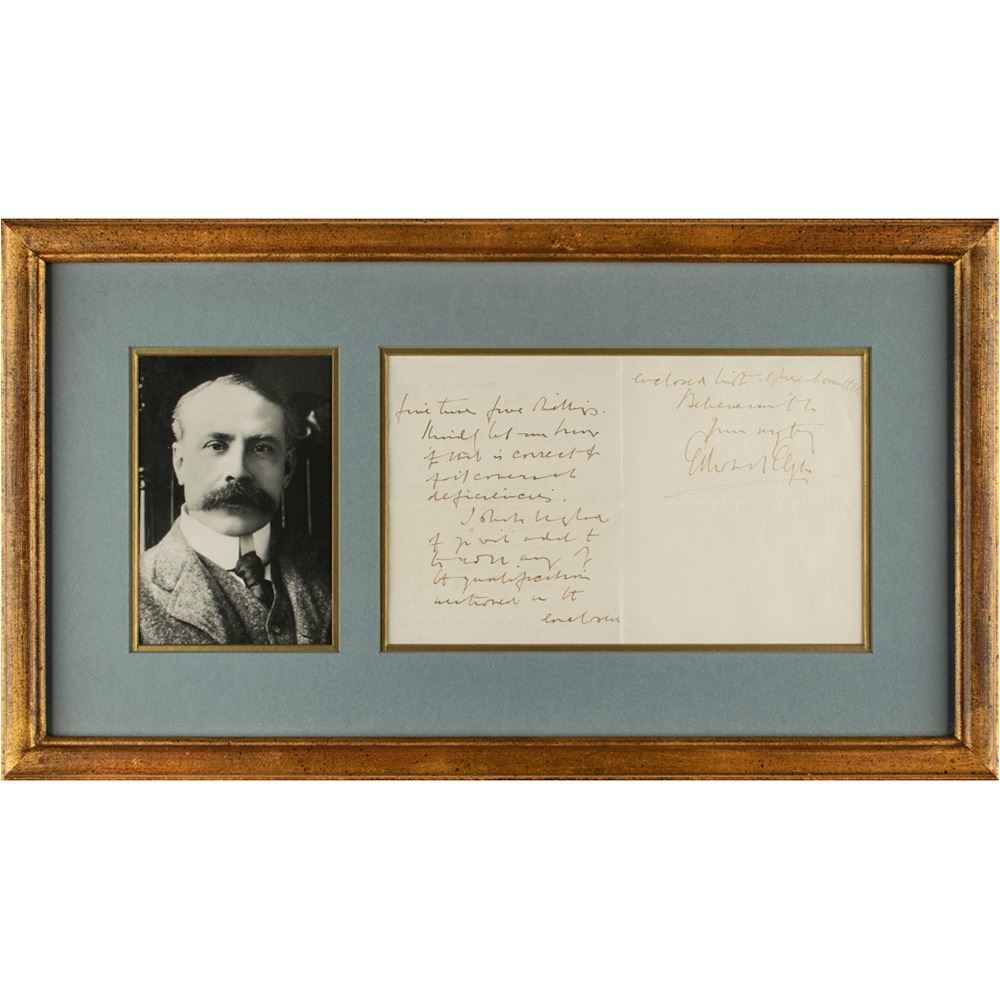 five times five shillings.
Kindly let me know
if this is correct &
if it covers all
deficiencies.
I shall be glad
if you will add to
any of
the qualifications
mentioned in the
enclosed
enclosed list of
Believe me to be
Yours very truly
Edward Elgar